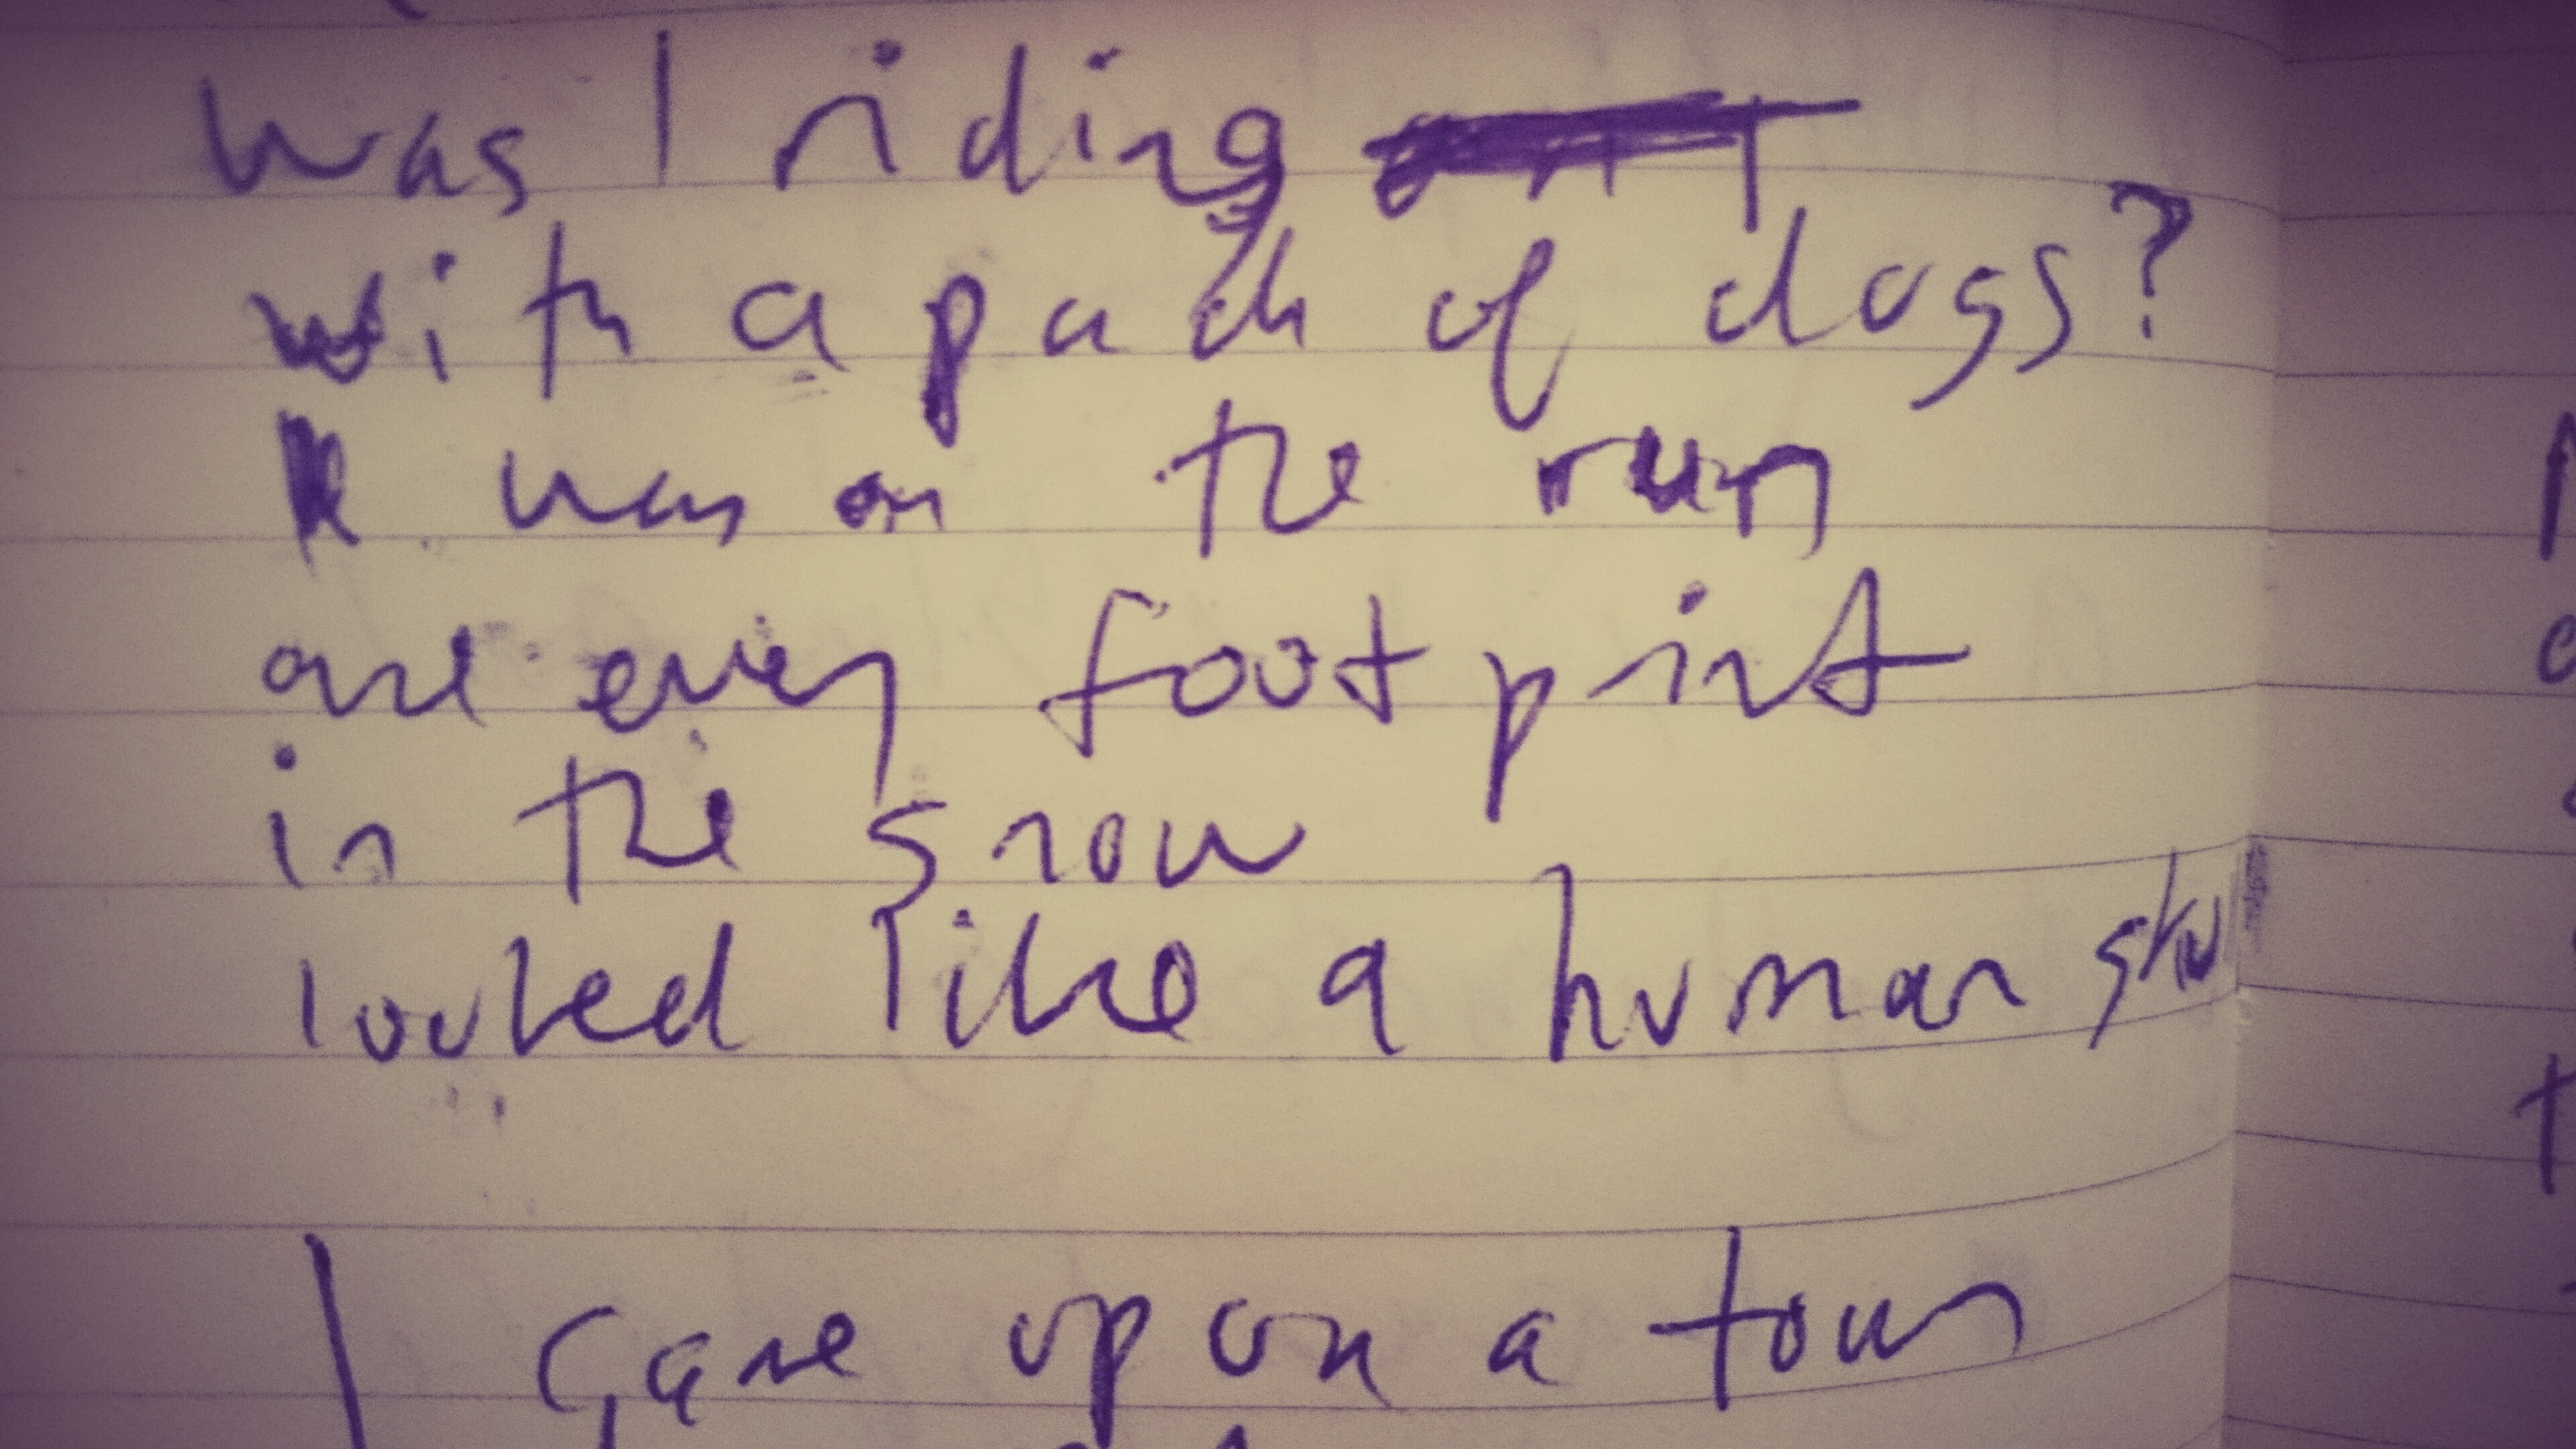 Was I riding
with a pack of dogs?
I was on the run
and every footprint
in the snow
looked like a human skull
I came upon a town